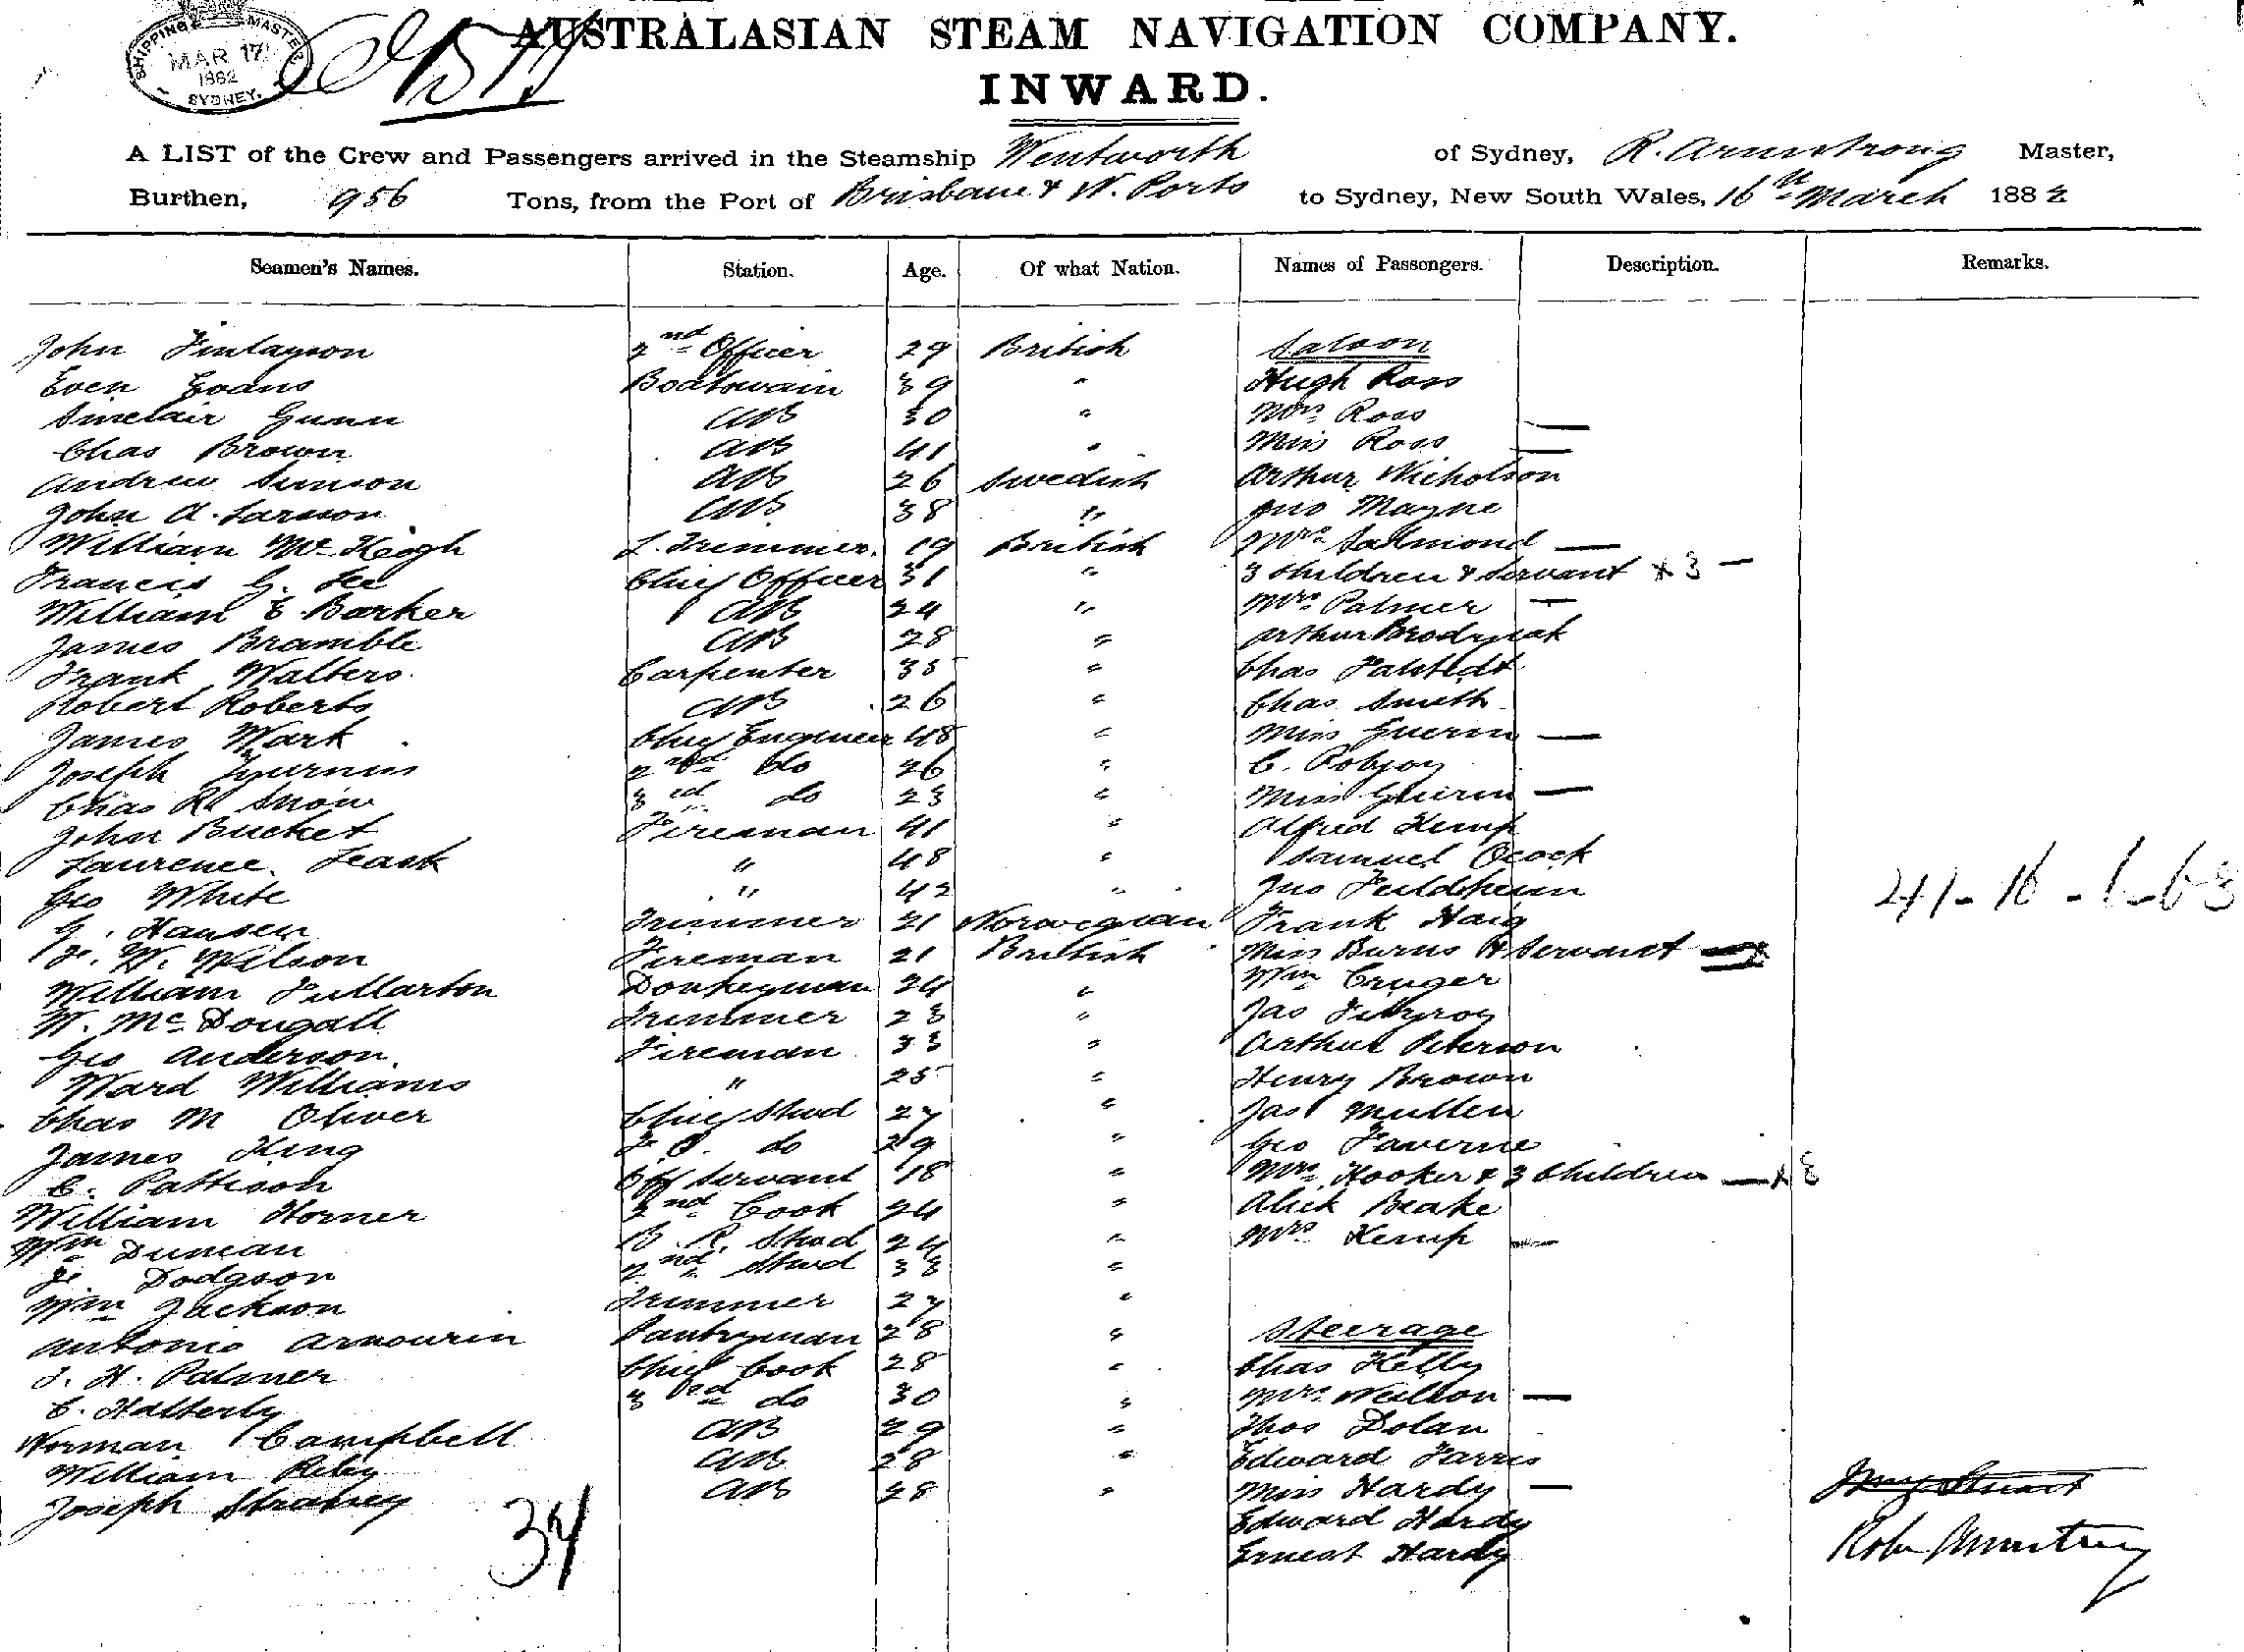 SHIPPING MASTER
MAR 17
1882
SYDNEY.
AUSTRALASIAN STEAM NAVIGATION COMPANY.
INWARD.
A LIST of the Crew and Passengers arrived in the Steamship Wentworth of Sydney, R. Armstrong Master,
Burthen, 956 Tons, from the Port of Brisbane & N. Ports to Sydney, New South Wales, 16th March 1882
Seamen's Names. Station. Age. Of what Nation. Names of Passengers. Description. Remarks.
John Finlayson 2nd Officer 29 British Saloon
Even Evans Boatswain 39 " Hugh Ross
Sinclair Gunn AB 30 " Mrs Ross —
Chas Brown AB 41 " Miss Ross —
Andrew Simson AB 26 Swedish Arthur Nicholson
John A. Larsson AB 38 " Jno Mayne
William Mc Keogh L. Trimmer. 19 British Mrs Salmond —
Francis G. Lee Chief Officer 31 " 3 Children & Servant x 3 —
William E. Barker AB 24 " Mrs Palmer —
James Bramble AB 28 " Arthur
Frank Walters. Carpenter 35 " Chas
Robert Roberts AB 26 " Chas Smith
James Wark Chief Engineer 48 " Miss Guerin —
Joseph 2nd do 26 " C. Robjoy
Chas R. Snow 3rd do 23 " Miss Guerin —
John Bucket Fireman 41 " Alfred Kemp
Laurence Leask " 48 " Samuel Ocock
Geo White " 42 " Jno Feldheim
G. Hansen Trimmer 21 Norwegian Frank Haig
F. W. Wilson Fireman 21 British Miss Burns & Servant
William Fullarton Donkeyman 24 " Wm Cruger
W. McDougall Trimmer 23 " Jas Fitzroy
Geo Anderson. Fireman 33 " Arthur Peterson
Ward Williams " 25 " Henry Brown
Chas M Oliver Chief Stwd 27 " Jas Mullen
James King F. C. do 29 " Geo Taverne
C. Pattison Off Servant 18 " Mrs Hooker & 3 Children — x 3
William Horner 2nd Cook 24 " Alick Beake
Wm Duncan B. R. Stwd 24 " Mrs Kemp —
F. Dodgson 2nd Stwd 33 "
Wm Jackson Trimmer 27 "
Antonio Pantryman 28 " Steerage
J. H. Palmer Chief Cook 28 " Chas Kelly
C. Hatterly 3rd do 30 " Mrs Neilson —
Norman Campbell AB 29 " Thos Dolan
William Riley AB 28 " Edward
Joseph AB 28 " Miss Hardy —
Edward Hardy
Ernest Hardy
34